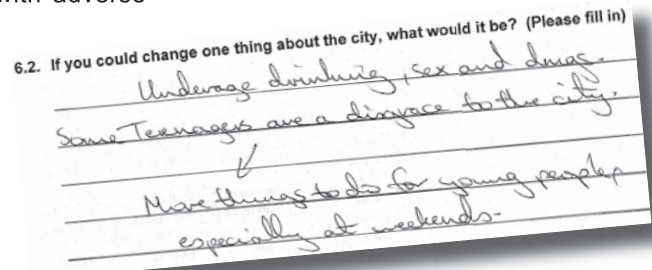 with adverse
6.2. If you could change one thing about the city, what would it be? (Please fill in)
Underage drinking, sex and drugs.
Some Teenagers are a disgrace to the city.
More things to do for young people,
especially at weekends.